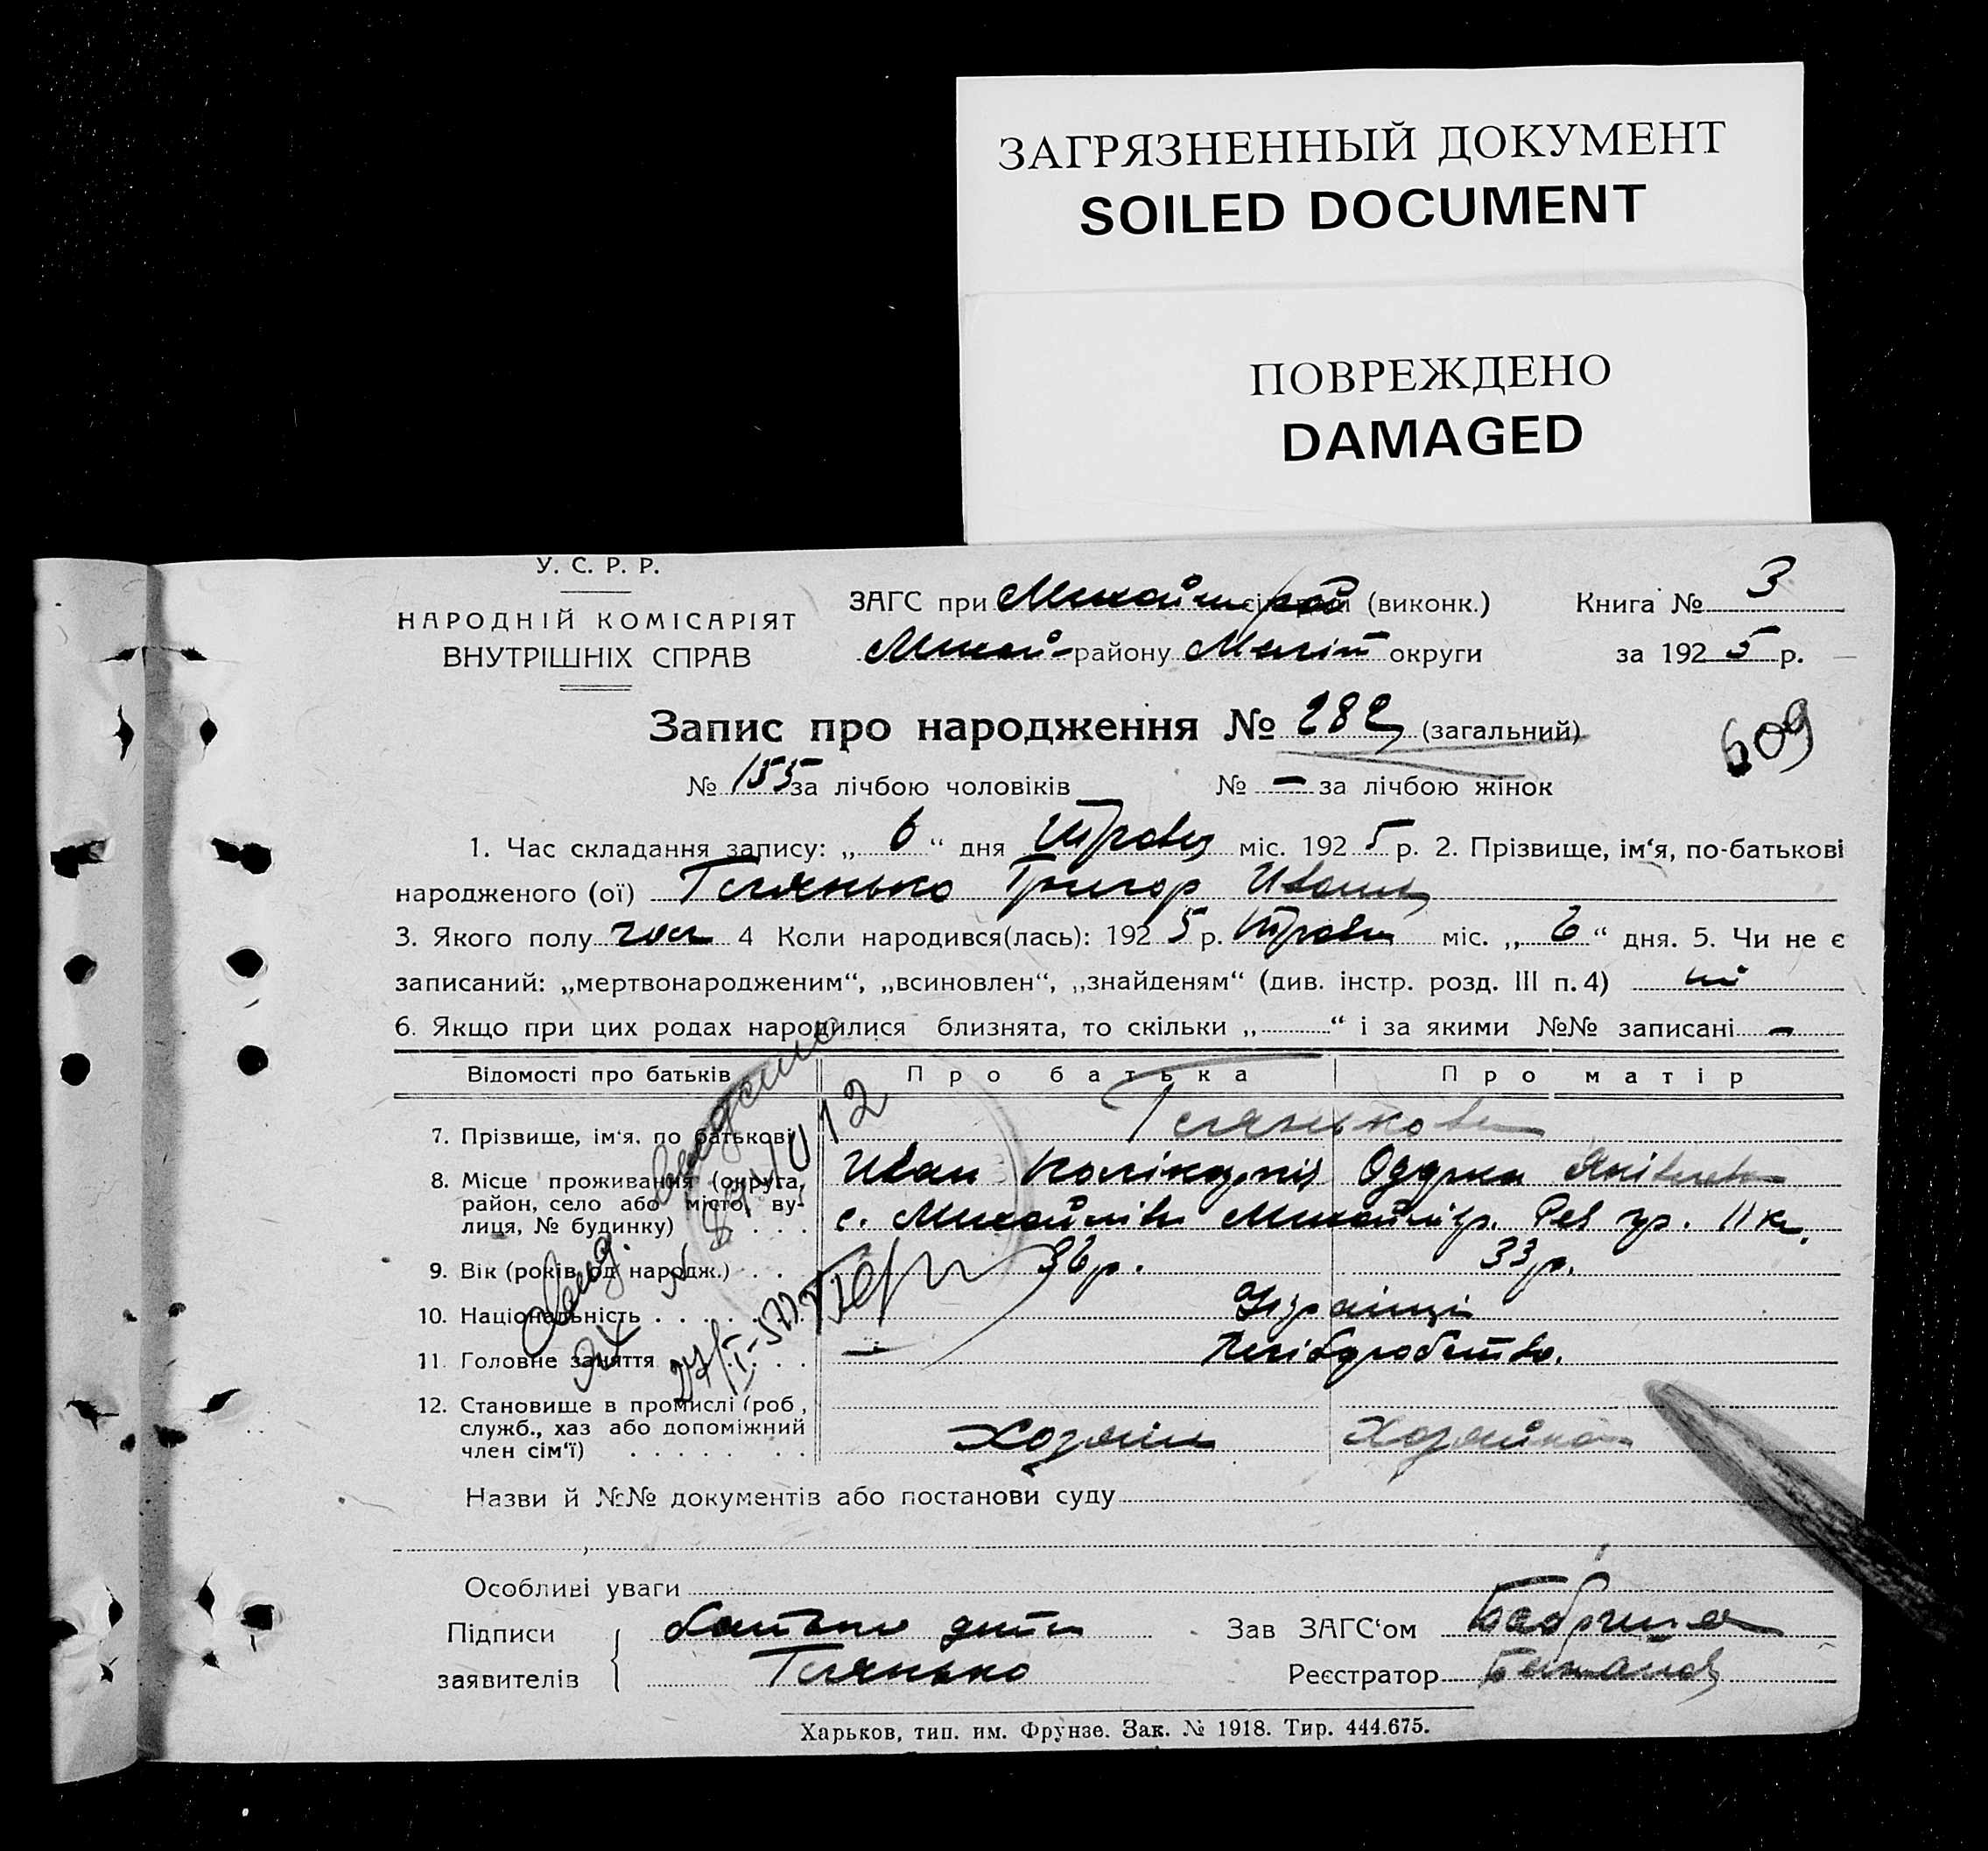 ЗАГРЯЗНЕННЫЙ ДОКУМЕНТ
SOILED DOCUMENT
ПОВРЕЖДЕНО
DAMAGED
У. С. Р. Р.
НАРОДНІЙ КОМІСАРІЯТ
ВНУТРІШНІХ СПРАВ
ЗАГС при (виконк.)
району Меліт округи
Книга № 3
за 1925 р.
Запис про народження № 282 (загальний)
609
№ 155 за лічбою чоловіків № — за лічбою жінок
1. Час складання запису: „ 6 “ дня Травня міс. 1925 р. 2. Прізвище, ім‘я, по-батькові
народженого (ої) Григор Иванов
3. Якого полу чол 4 Коли народився(лась): 1925 р. Травня міс. „ 6 “ дня. 5. Чи не є
записаний: „мертвонародженим“, „всиновлен“, „знайденям“ (див. інстр. розд. III п. 4) ні
6. Якщо при цих родах народилися близнята, то скільки „ “ і за якими №№ записані —
Відомості про батьків Про батька Про матір
7. Прізвище, ім‘я, по батькові
8. Місце проживання (округа, район, село або місто, вулиця, № будинку)
Иван
с. Михайлівка
9. Вік (років од народж.) 36 р. 33 р.
10. Національність Українці
11. Головне заняття — Хліборобство.
12. Становище в промислі (роб., служб., хаз або допоміжний член сім‘ї)
Хозяїн Хозяйка
27/I-57
Назви й №№ документів або постанови суду
Особливі уваги
Підписи заявителів
батько дити
Зав ЗАГС‘ом
Реєстратор
Харьков, тип. им. Фрунзе. Зак. № 1918. Тир. 444.675.